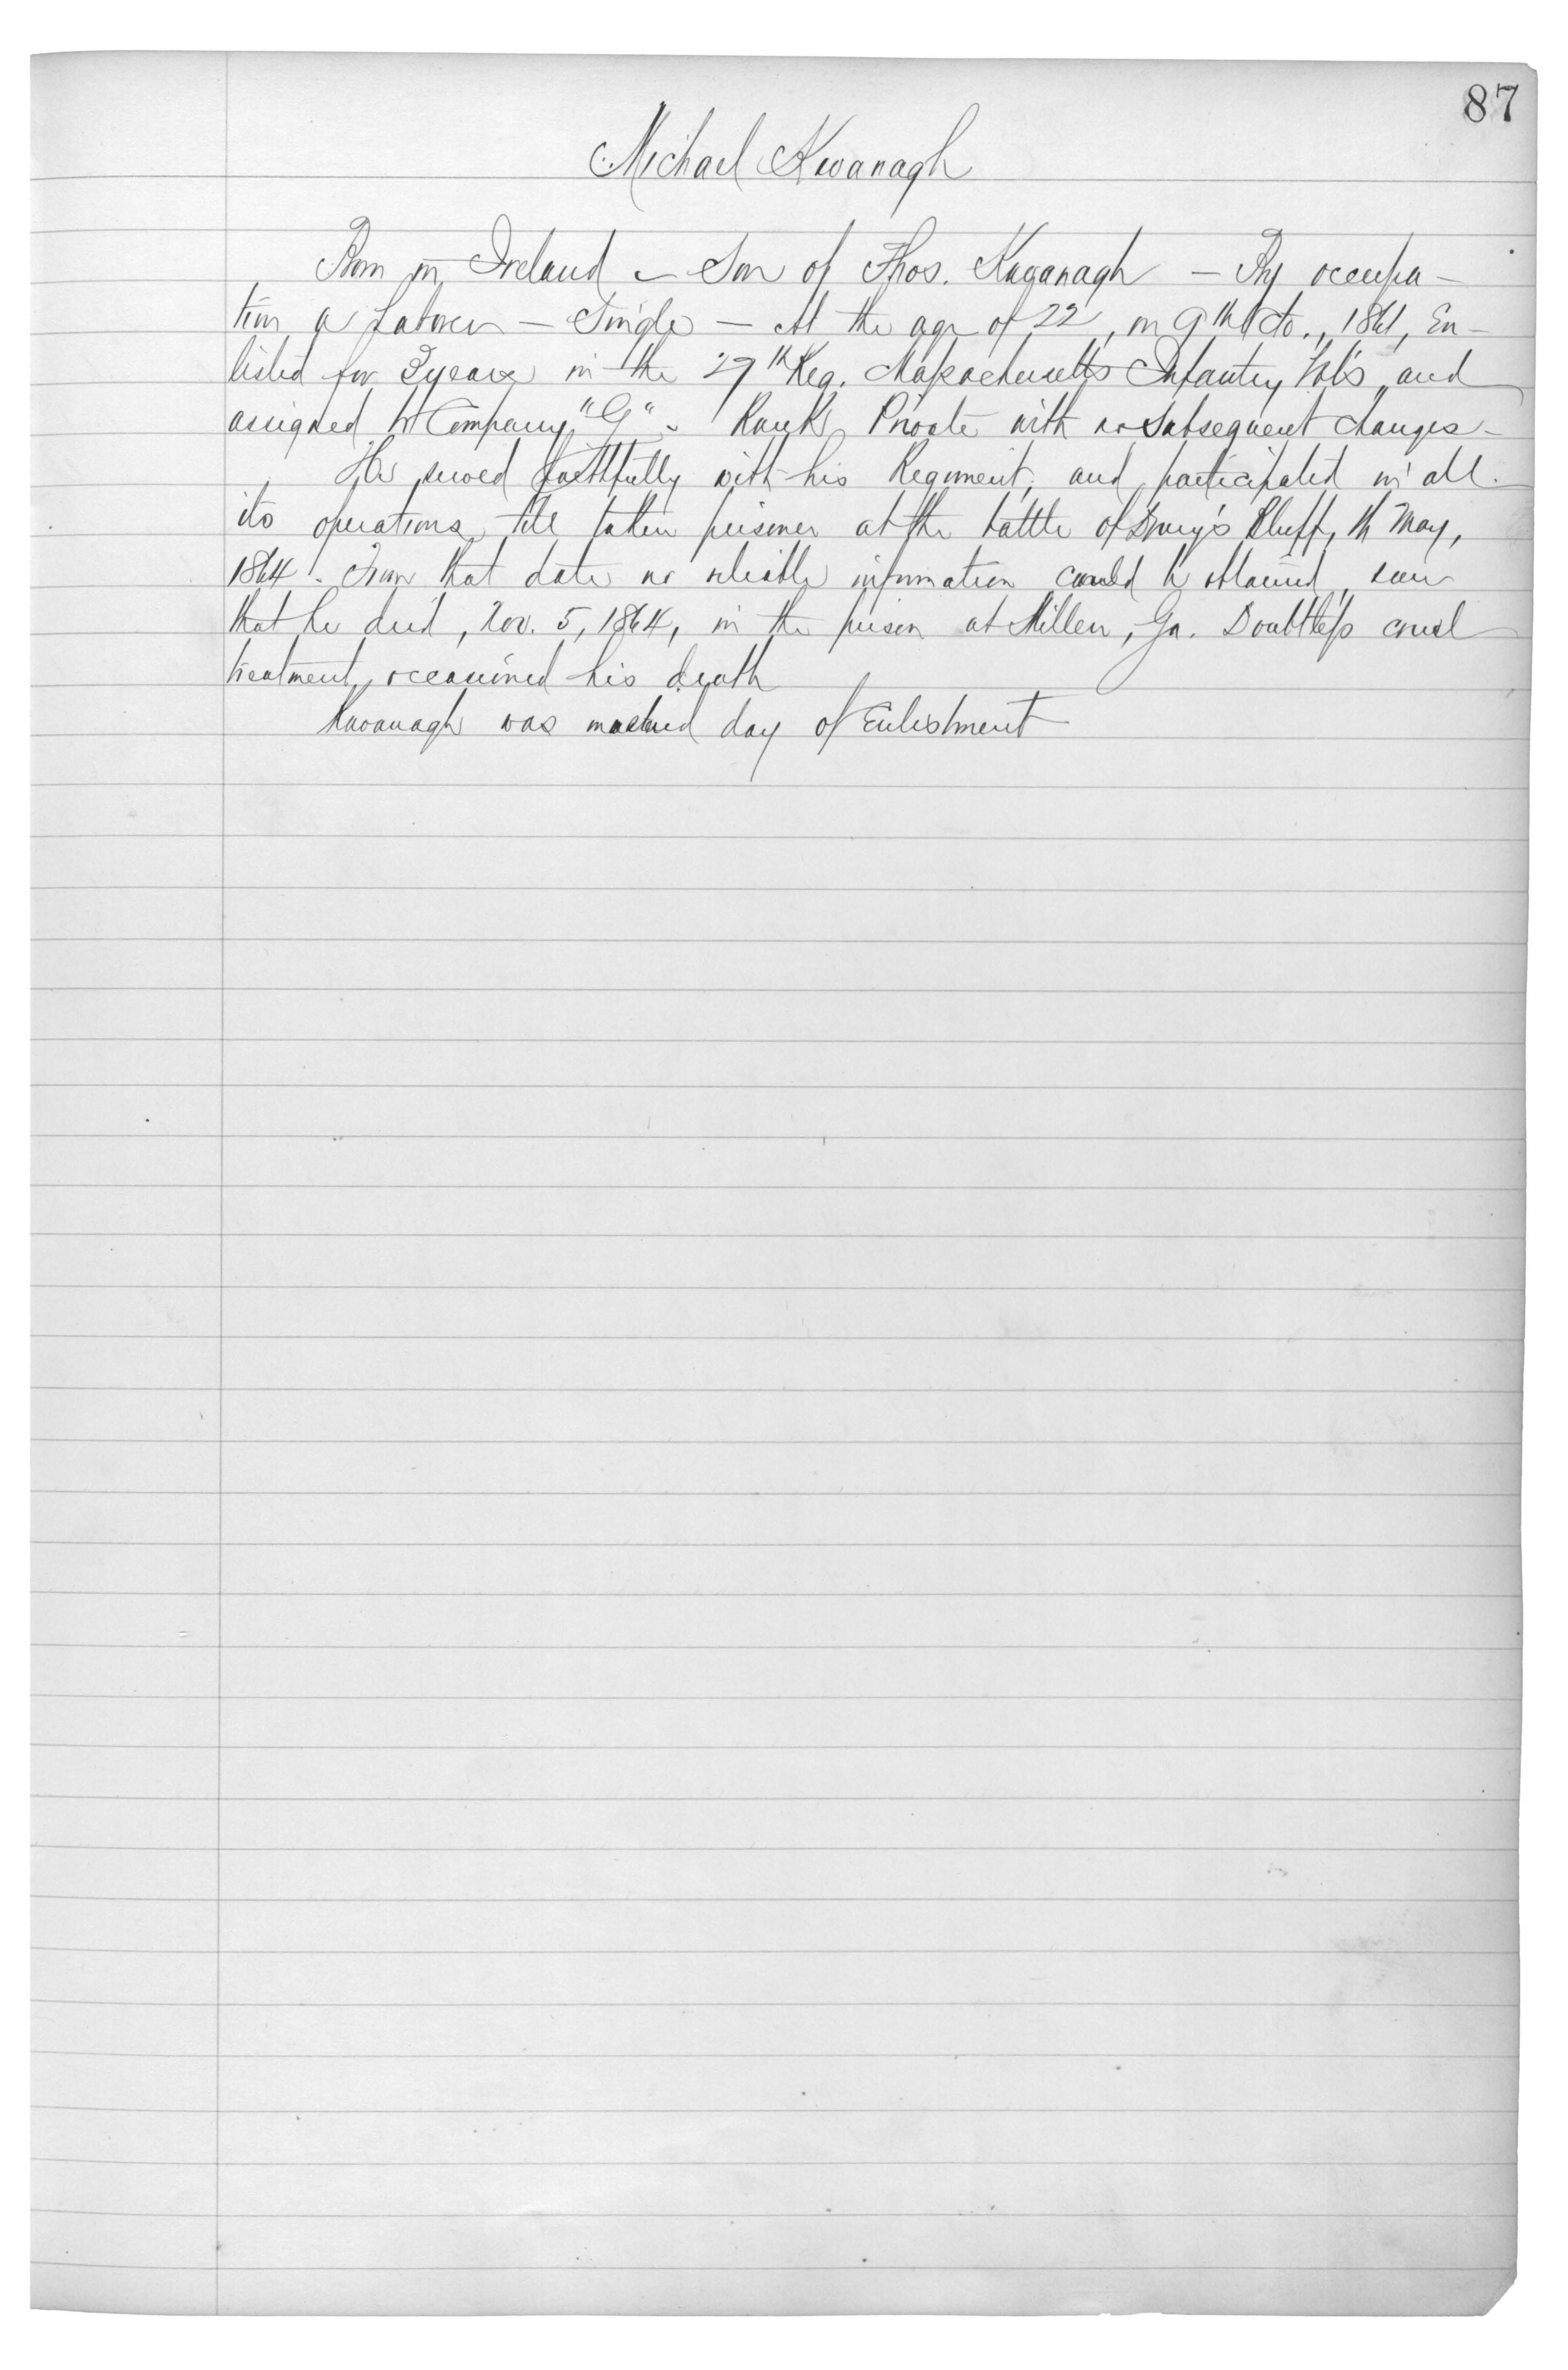 87
Michael Kavanagh
Born in Ireland - Son of Thos. Kavanagh - By occupa-
tion a Laborer - Single - At the age of 22, on 9th Oct., 1861, En-
listed for 3 years in the 27th Reg. Massachusetts Infantry Vols and
assigned to Company "G" - Rank Private with no subsequent changes -
He served faithfully with his Regiment, and participated in all
its operations till taken prisoner at the battle of Drury's Bluff, 16 May,
1864. From that date no reliable information could be obtained, save
that he died, Nov. 5, 1864, in the prison at Millen, Ga. Doubtless cruel
treatment occasioned his death
Kavanagh was day of Enlistment